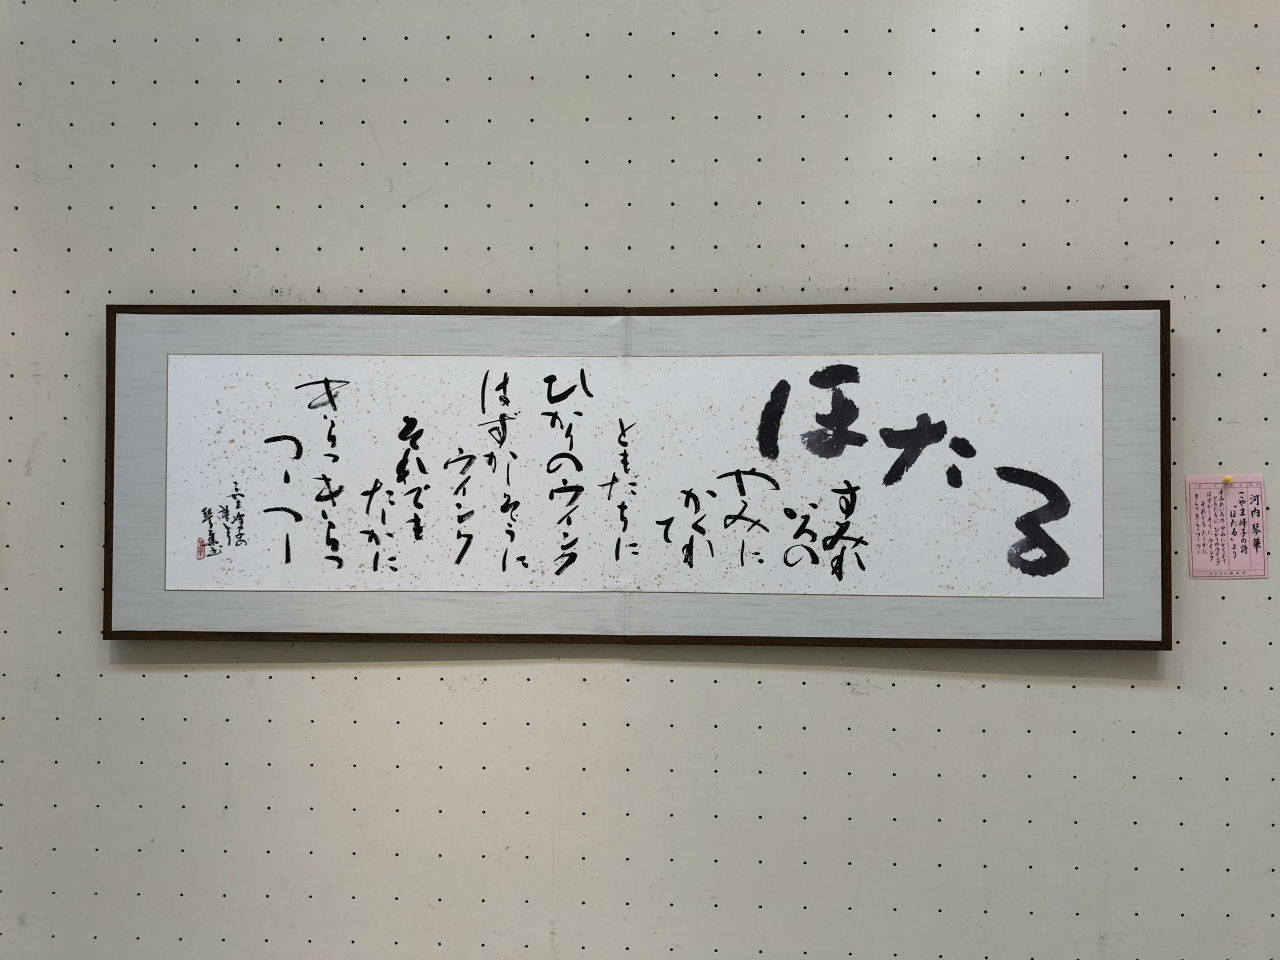 ほたる
すみれ
いろの
やみに
かくれ
て
ともだちに
ひかりのウインク
はずかしそうに
ウインク
それでも
たしかに
きらっきらっ
つーつー
こやま峰子の
詩より
琴華書
河内 琴華
こやま峰子の詩
「ほたる」より